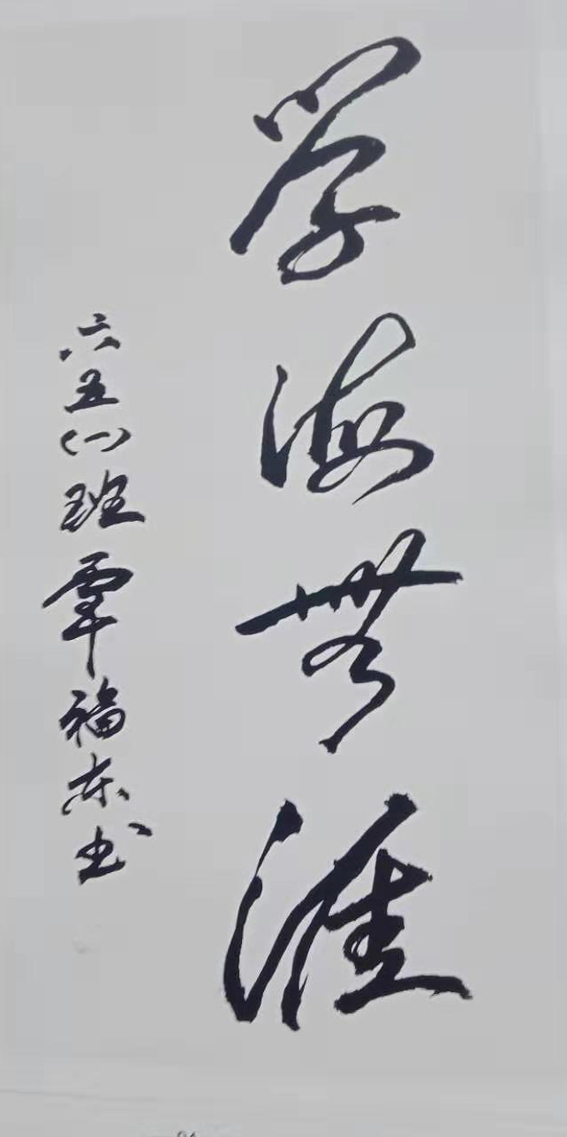 学海無涯
六五(一)班覃福东书